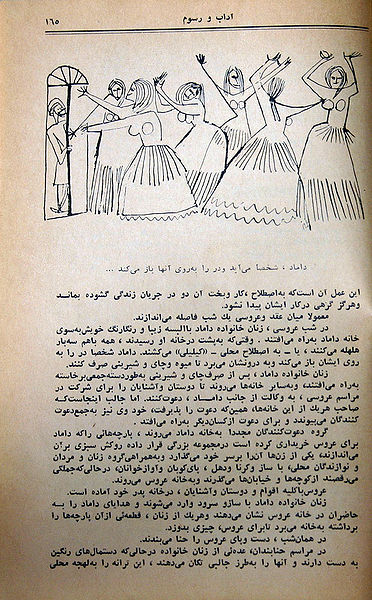 آداب و رسوم
۱۶۵
داماد ، شخصا می‌آید ودر را به‌روی آنها باز می‌کند ...
این عمل آن است‌که به‌اصطلاح ،کار وبخت آن دو در جریان زندگی گشوده بمانـد
وهرگز گرهی درکار ایشان پیدا نشود.
معمولا میان عقد وعروسی یك شب فاصله می‌اندازند.
در شب عروسی ، زنان خانواده داماد باالبسه زیبا و رنگارنگ خویش به‌سوی
خانه داماد به‌راه می‌افتند . وقتی‌که به‌پشت درخانه او رسیدند ، همه باهم سه‌بار
هلهله می‌کنند ، یا ـ به اصطلاح محلی ـ «کیلیلی» می‌کشند. داماد شخصا در را به
روی ایشان باز می‌کند وبه درونشان می‌برد تا میوه وچای و شیرینی صرف کنند.
زنان خانواده داماد ، پس از صرف‌چای و شیرینی به‌طوردسته‌جمعی‌برخاسته
به‌راه می‌افتند، وبه‌سایر خانه‌ها می‌روند تا دوستان وآشنایان را برای شرکت در
مراسم عروسی ، به وکالت از جانب دامـــاد ، دعوت‌کنند. اما جالب اینجاست‌کـه
صاحب هریك از این خانه‌ها، همین‌که دعوت را پذیرفت، خود وی نیز به‌جمع‌دعوت
کنندگان می‌پیوندد و برای دعوت ازکسان‌دیگر به‌راه می‌افتد .
گروه دعوت‌کنندگان مجددا به‌خانه داماد می‌روند ، پارچه‌هائی راکه داماد
برای عروس خریداری کرده است درمجموعه بزرگی قرار داده روکش سبزی برآن
می‌اندازند، یکی از زن‌ها آن‌را برسر خود می‌گذارد وبه‌همراهی‌گروه زنان و مردان
و نوازندگان محلی، با ساز وکرنا ودهل ، پای‌کوبان وآوازخوانان، درحالی‌که‌جملگی
می‌رقصند ازکوچه‌ها و خیابان‌ها می‌گذرند وبه‌خانه عروس می‌روند.
عروس‌باکلیه اقوام و دوستان وآشنایان ، درخانه پدر خود آماده است.
زنان خانواده داماد با سازو سرود وارد می‌شوند و هدایای داماد را بــه
حاضران در خانه عروس نشان می‌دهند وهریك از زنان ، قطعه‌ئی ازآن پارچه‌ها را
برداشته به‌خانه می‌برد تابرای عروس، چیزی بدوزد.
در همان‌شب ، دست وپای عروس را حنا می‌بندند.
در مراسم حنابندان، عده‌ئی از زنان خانواده درحالی‌که دستمال‌های رنگین
به دست دارند و آنها را به‌طرز جالبی تکان می‌دهند ، این ترانه را به‌لهجه محلی